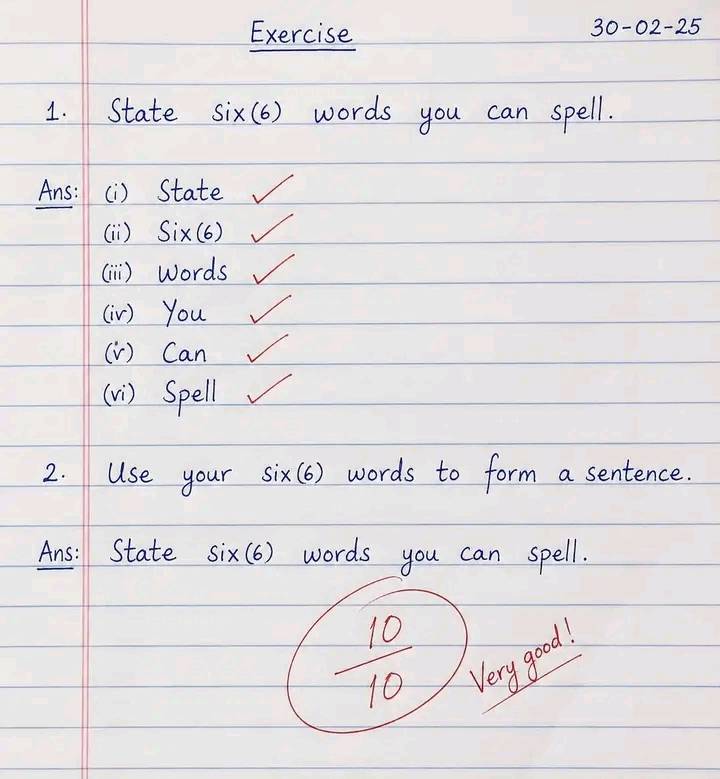 Exercise 30-02-25
1. State six(6) words you can spell.
Ans: (i) State ✓
(ii) Six(6) ✓
(iii) Words ✓
(iv) You ✓
(v) Can ✓
(vi) Spell ✓
2. Use your six(6) words to form a sentence.
Ans: State six(6) words you can spell.
10
10
Very good!